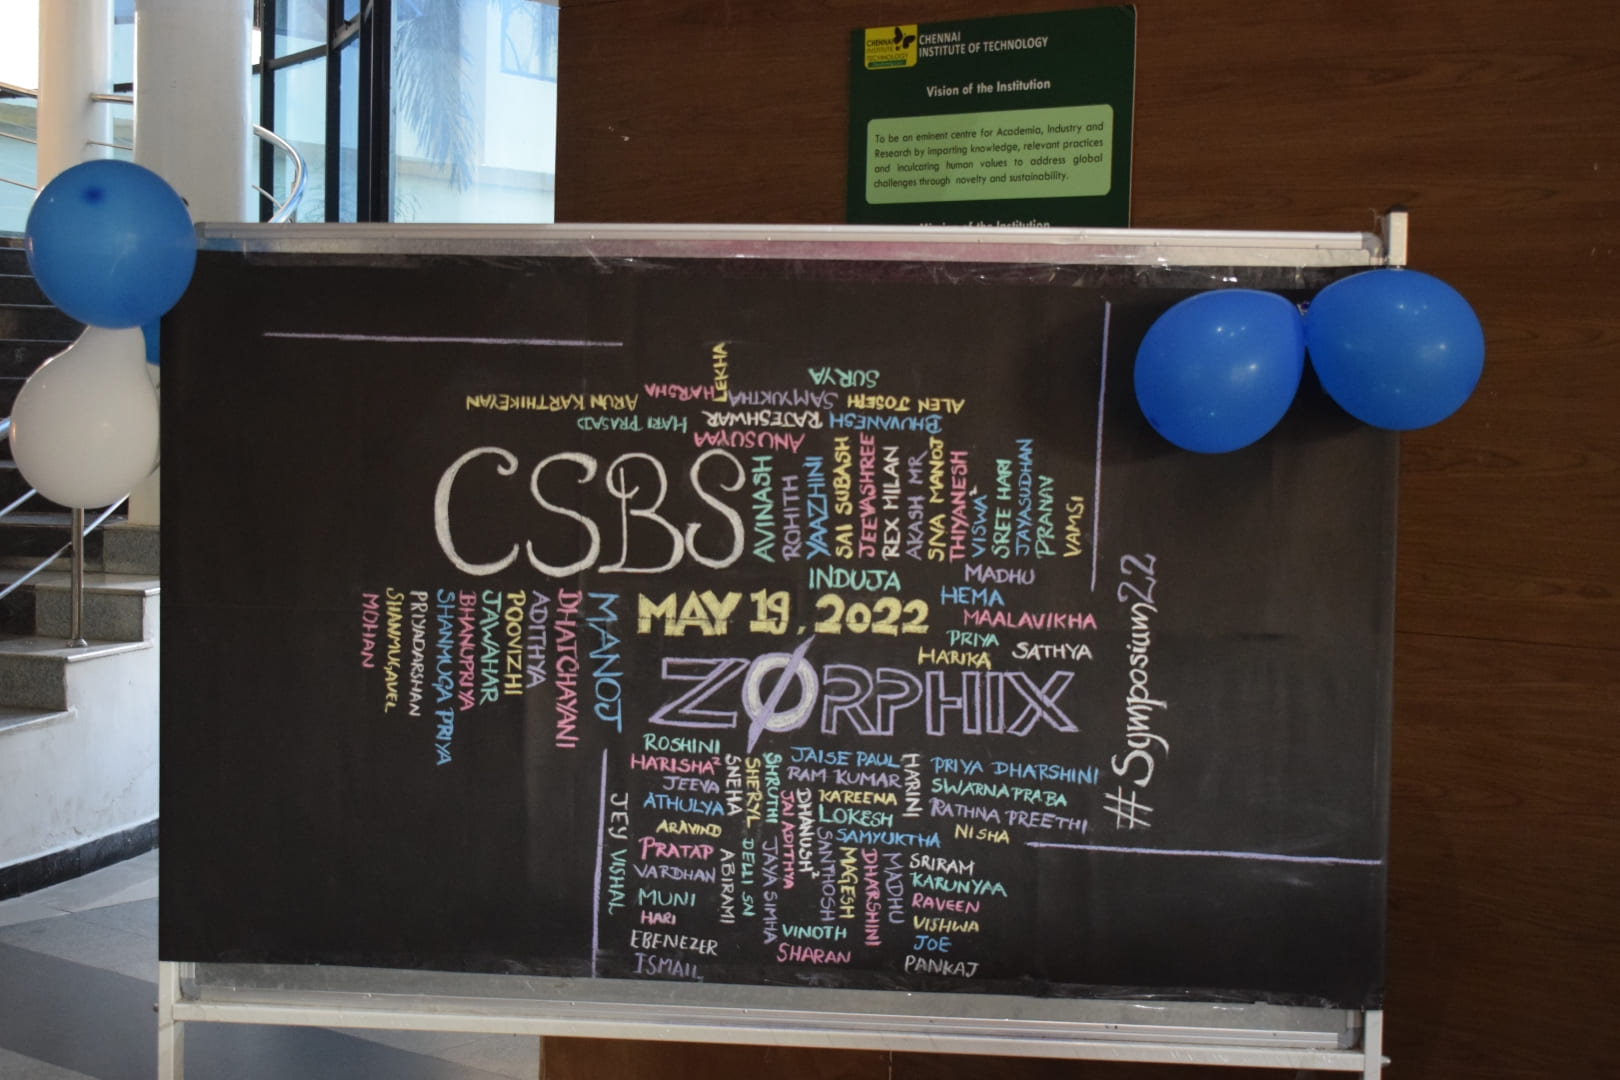 CHENNAI
INSTITUTE OF
TECHNOLOGY
CHENNAI
INSTITUTE OF TECHNOLOGY
Vision of the Institution
To be an eminent centre for Academia, Industry and
Research by imparting knowledge, relevant practices
and inculcating human values to address global
challenges through novelty and sustainability.
Vision of the Institution
LEKHA
SURYA
HARSHA
SAMYUKTHA
ARUN KARTHIKEYAN
ALEN JOSEPH
HARI PRASAD
RAJESHWAR
BHUVANESH
ANUSUYAA
CSBS
AVINASH
ROHITH
YAAZHINI
SAI SUBASH
JEEVASHREE
REX MILAN
AKASH MR
SIVA MANOJ
THIYANESH
VISWA²
SREE HARI
JAYASUDHAN
PRANAV
VAMSI
INDUJA
MADHU
HEMA
MAALAVIKHA
PRIYA
SATHYA
HARIKA
MAY 19, 2022
ZØRPHIX
#Symposium22
MDHAN
SHANMUGAVEL
PRIYADARSHAN
SHANMUGA PRIYA
BHANUPRIYA
JAWAHAR
POOVIZHI
ADITHYA
DHATCHAYANI
MANOJ
ROSHINI
HARISHA²
JEEVA
ATHULYA
ARAVIND
PRATAP
VARDHAN
MUNI
HARI
EBENEZER
ISMAIL
JEY VISHAL
SNEHA
SHERYL
SHRUTHI
ABIRAMI
DELLI SN
JAYA SIMHA
JAI ADITHYA
DHANUSH²
SANTHOSH
JAISE PAUL
RAM KUMAR
KAREENA
LOKESH
SAMYUKTHA
HARINI
PRIYA DHARSHINI
SWARNAPRABA
RATHNA PREETHI
NISHA
MAGESH
DHARSHINI
MADHU
VINOTH
SHARAN
SRIRAM
KARUNYAA
RAVEEN
VISHWA
JOE
PANKAJ